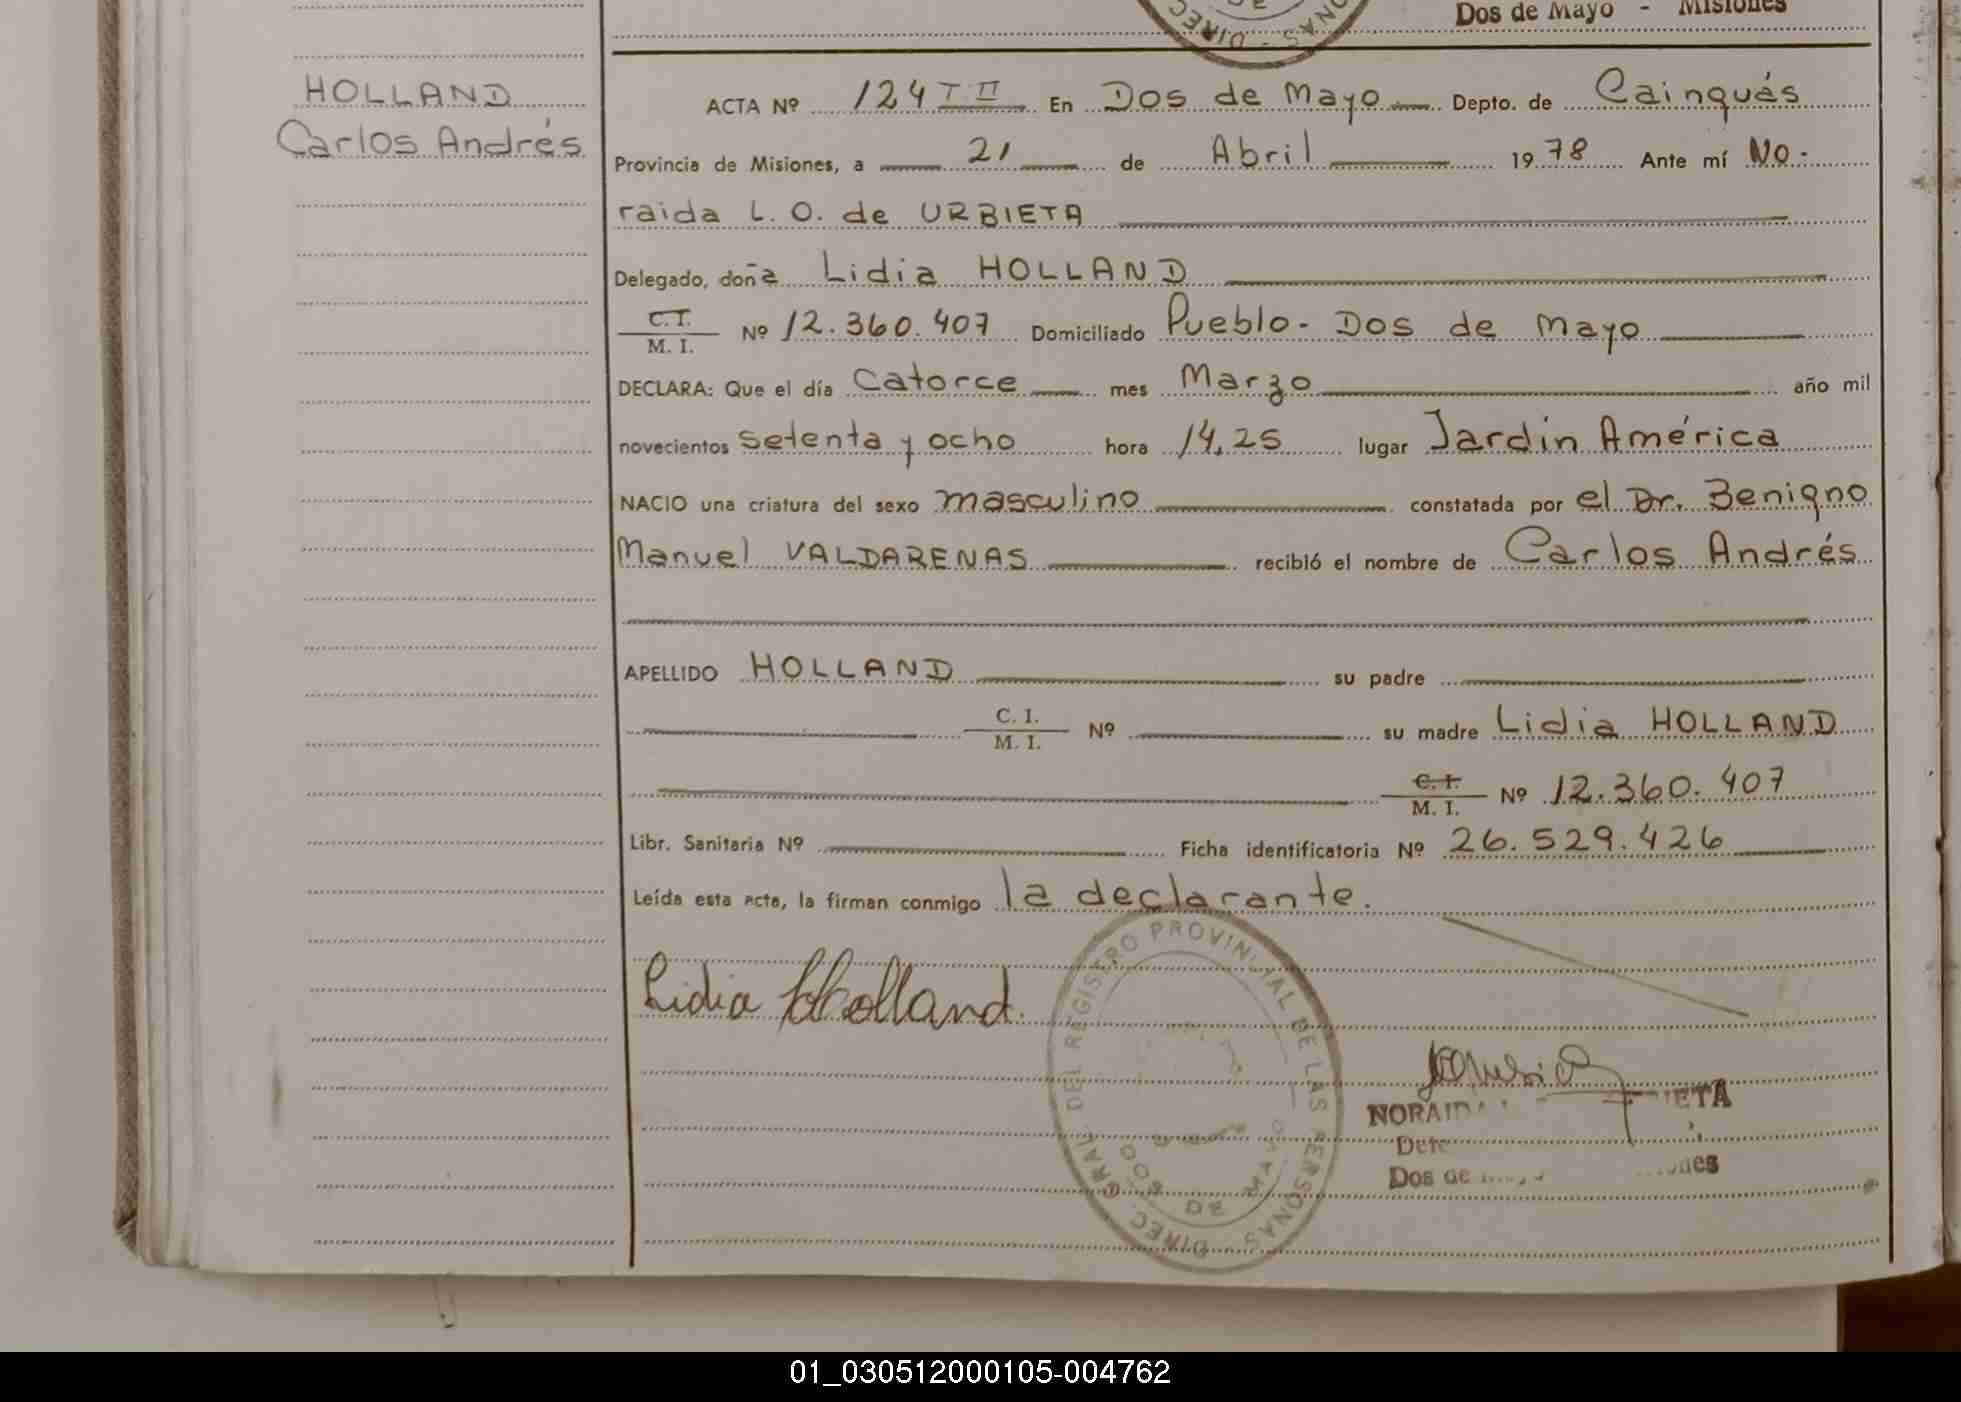 Dos de Mayo - Misiones
HOLLAND
Carlos Andrés
ACTA Nº 124 T II En Dos de Mayo Depto. de Cainguás
Provincia de Misiones, a 21 de Abril 1978 Ante mí No-
raida L. O. de URBIETA
Delegado, doña Lidia HOLLAND
C.I. M. I. Nº 12.360.407 Domiciliado Pueblo - Dos de Mayo
DECLARA: Que el día Catorce mes Marzo año mil
novecientos setenta y ocho hora 14,25 lugar Jardín América
NACIO una criatura del sexo masculino constatada por el Dr. Benigno
Manuel VALDARENAS recibló el nombre de Carlos Andrés
APELLIDO HOLLAND su padre
C. I. M. I. Nº su madre Lidia HOLLAND
C. I. M. I. Nº 12.360.407
Libr. Sanitaria Nº Ficha identificatoria Nº 26.529.426
Leída esta acta, la firman conmigo la declarante.
Lidia Holland.
DIREC. GRAL. DEL REGISTRO PROVINCIAL DE LAS PERSONAS
DOS DE MAYO
NORAIDA
Dos de
01_030512000105-004762